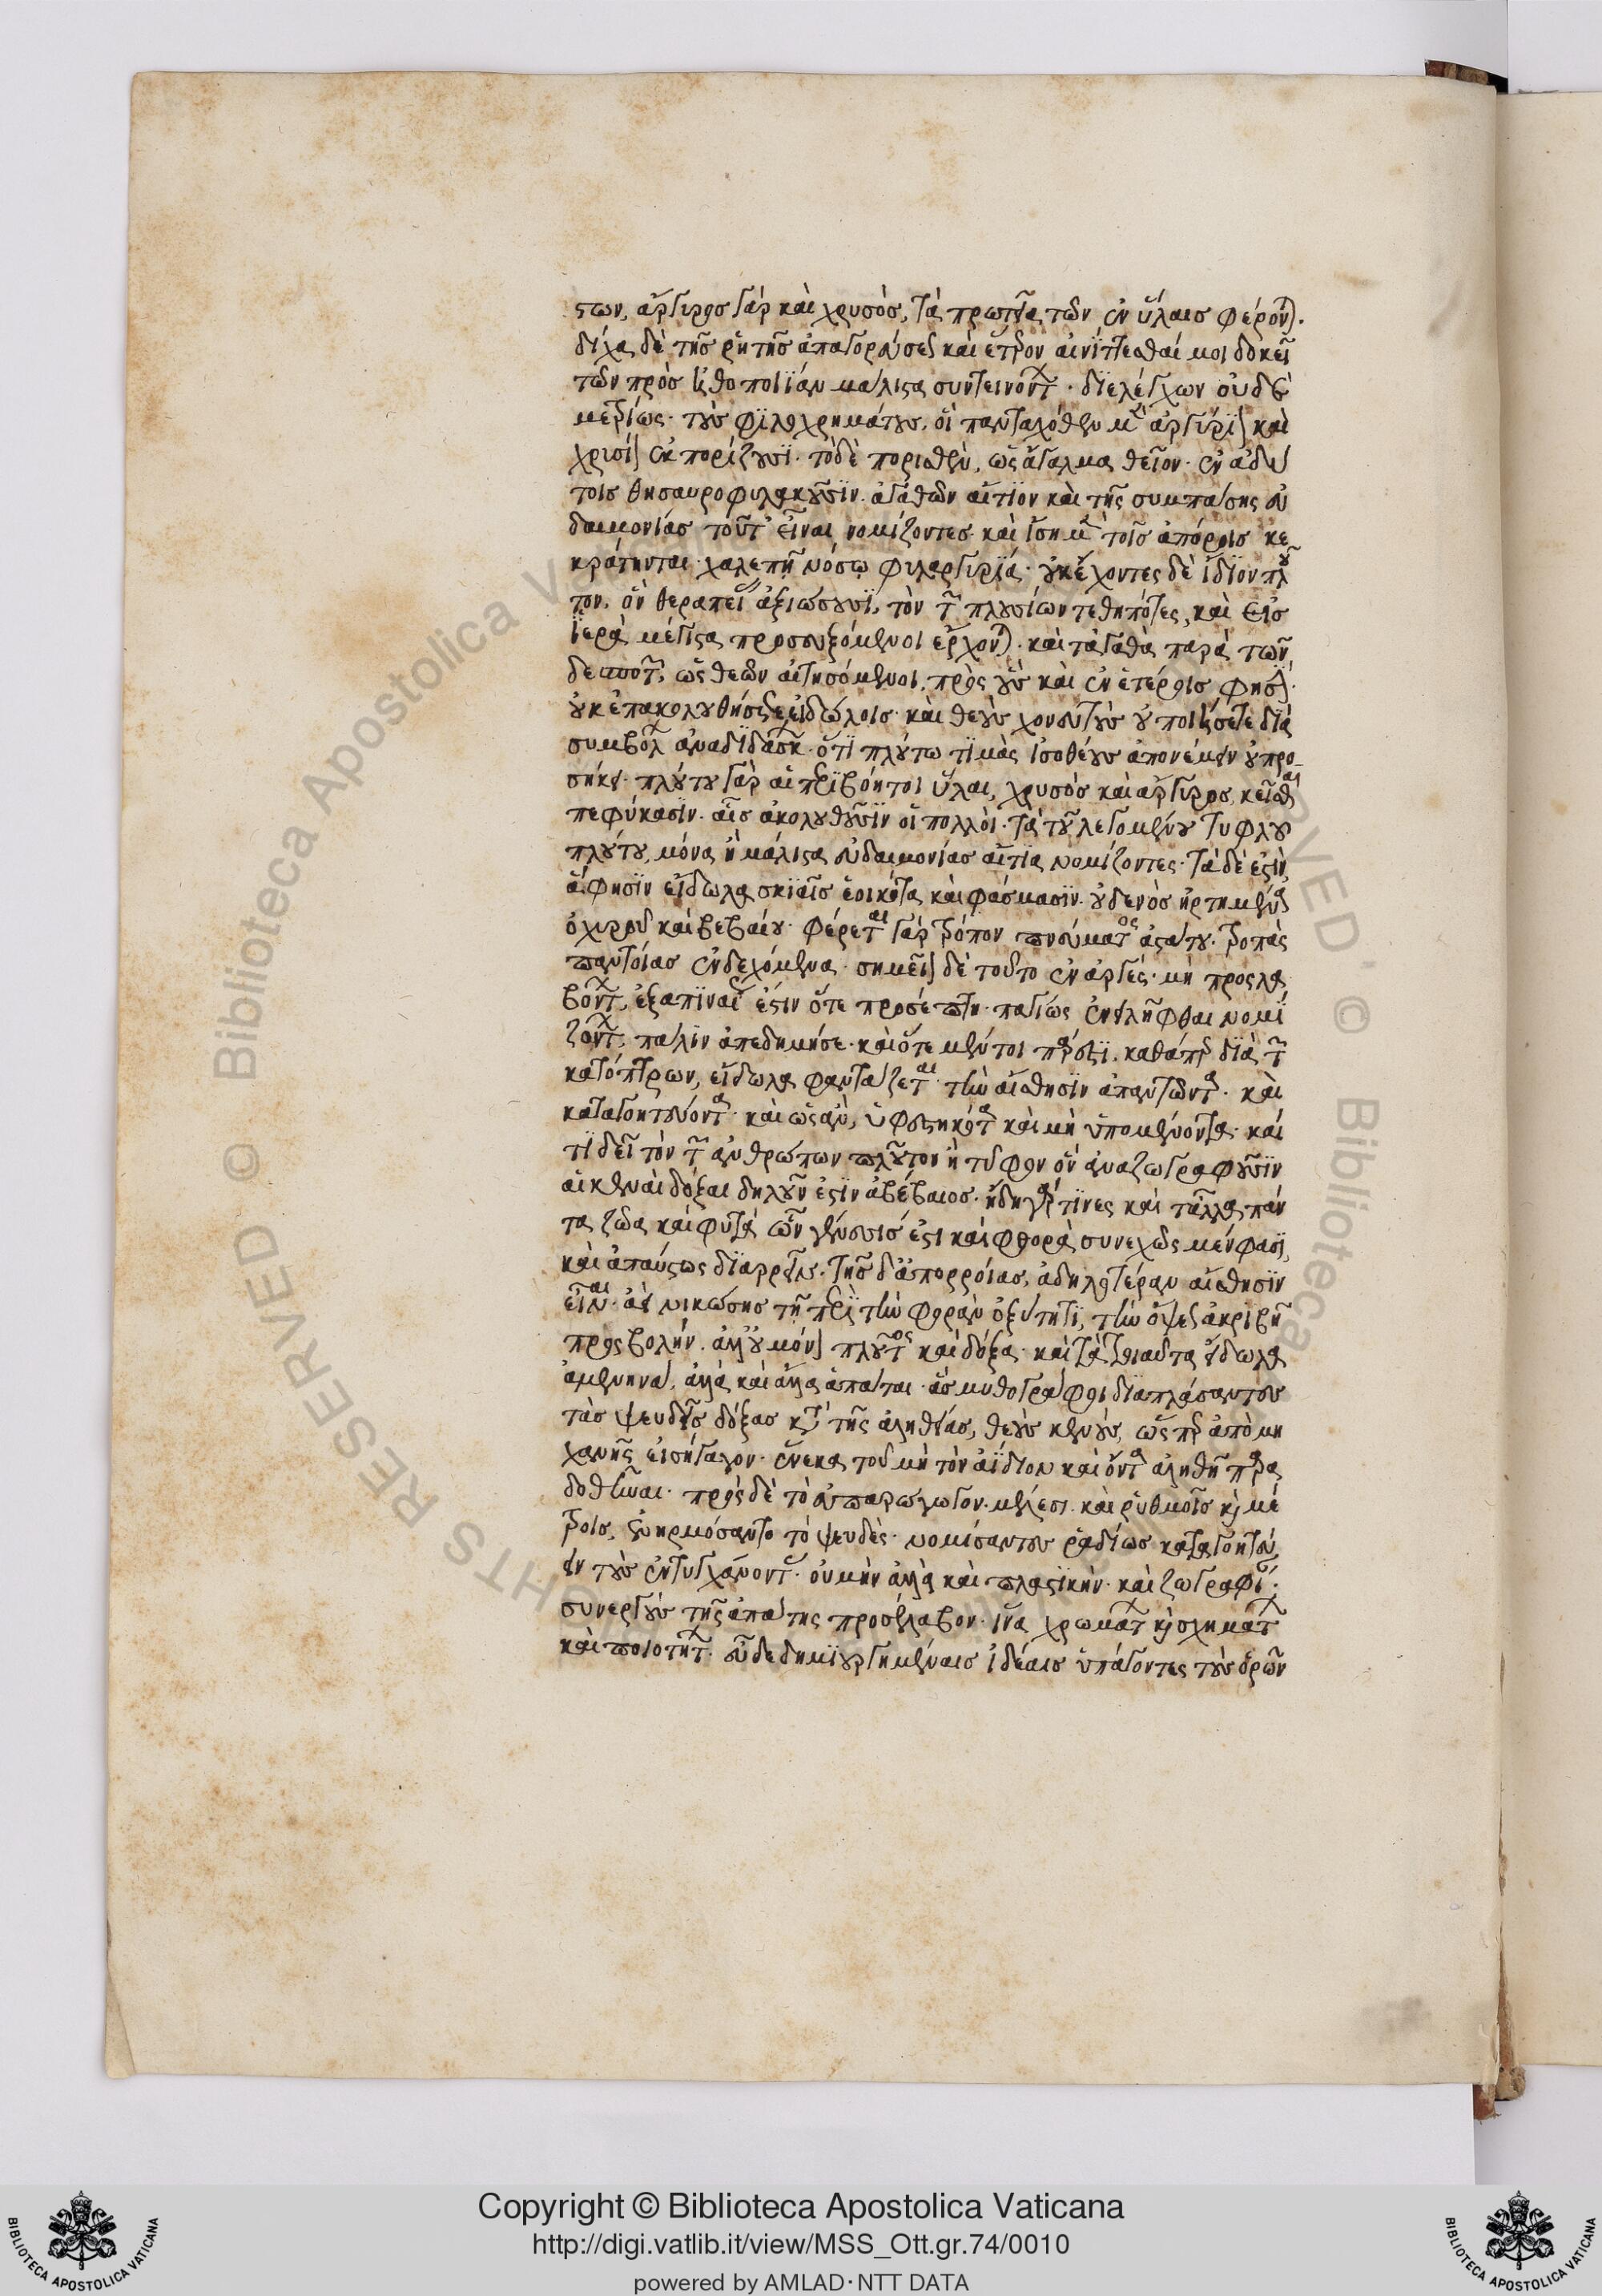 στων, ἄργυρος γὰρ καὶ χρυσὸς, τὰ πρωτεῖα τῶν ἐν ὕλαις φέρονται.
δίχα δὲ τῆς ῥητῆς ἀπαγορεύσεως καὶ ἕτερον αἰνίττεσθαί μοι δοκεῖ
τῶν πρὸς ἠθοποιΐαν μάλιστα συντεινόντων. διελέγχων οὐδὲ
μετρίως τοὺς φιλοχρημάτους, οἳ πανταχόθεν μὲν ἀργύριον καὶ
χρυσίον ἐκπορίζουσι. τὸ δὲ πορισθὲν, ὡς ἄγαλμα θεῖον ἐν ἀδύ
τοις θησαυροφυλακοῦσιν. ἀγαθῶν αἴτιον καὶ τῆς συμπάσης εὐ
δαιμονίας τοῦτ' εἶναι νομίζοντες. καὶ τοῖς ἀπόροις κε
κράτηνται χαλεπῇ νόσῳ φιλαργυρίᾳ. οὐκ ἔχοντες δὲ ἴδιον πλοῦ
τον, ὃν θεραπείας ἀξιώσουσι, τὸν τῶν πλησίων τεθηπότες, καὶ εἰς
ἱερὰ μέγιστα προσευξόμενοι ἔρχονται. καὶ τἀγαθὰ παρὰ τῶν
δεσποτῶν, ὡς θεῶν αἰτησόμενοι, πρὸς οὓς καὶ ἐν ἑτέροις φησίν.
οὐκ ἐπακολουθήσετε εἰδώλοις καὶ θεοὺς χωνευτοὺς οὐ ποιήσετε διὰ
συμβόλων ἀναδιδάσκων. ὅτι πλούτῳ τιμὰς ἰσοθέους ἀπονέμειν οὐ προ-
σῆκε. πλούτου γὰρ αἱ περιβόητοι ὗλαι, χρυσὸς καὶ ἄργυρος κεῖσθαι
πεφύκασιν. αἷς ἀκολουθοῦσιν οἱ πολλοί. τὰ τοῦ λεγομένου τυφλοῦ
πλούτου, μόνα ἢ μάλιστα εὐδαιμονίας αἴτια νομίζοντες. τὰ δέ ἐστιν
ἅ φησιν εἴδωλα σκιαῖς ἐοικότα καὶ φάσμασιν. οὐδενὸς ἠρτημένα
ὀχυροῦ καὶ βεβαίου. φέρεται γὰρ τρόπον πνεύματος ἀστάτου. τροπὰς
παντοίας ἐνδεχόμενα. σημεῖον δὲ τοῦτο ἐναργές. μὴ προσλα
βόντων, ἐξαπιναίως ἔστιν ὅτε προσέπτη. παγίως ἐνειλῆφθαι νομι
ζόντων, πάλιν ἀπεδήμησε. καὶ ὅτε μέντοι πάρεστι, καθάπερ διὰ τῶν
κατόπτρων, εἴδωλα φαντάζεται τὴν αἴσθησιν ἀπατῶντα. καὶ
καταγοητεύοντα. καὶ ὡς ἂν, ὑφεστηκότα καὶ μὴ ὑπομένοντα. καὶ
τί δεῖ τὸν τῶν ἀνθρώπων πλοῦτον ἢ τῦφον ὃν ἀναζωγραφοῦσιν
αἱ κεναὶ δόξαι δηλοῦν ἔστιν ἀβέβαιος. ἤδη γάρ τινες καὶ τἆλλα πάν
τα ζῶα καὶ φυτὰ ὧν γένεσίς ἐστι καὶ φθορὰ συνεχῶς μέν φασι,
καὶ ἀπαύστως διαρρεῖν. τῆς δ' ἀπορροίας, ἀδηλοτέραν αἴσθησιν
εἶναι ἀεὶ νικώσης τῇ περὶ τὴν φορὰν ὀξύτητι, τὴν ὄψεως ἀκριβῆ
προσβολήν. ἀλλ' οὐ μόνον πλοῦτος καὶ δόξα καὶ τὰ τοιαῦτα εἴδωλα
ἀμενηνά, ἀλλὰ καὶ ἄλλα ἀπάται. ἃς μυθογράφοι διαπλάσαντες
τὰς ψευδεῖς δόξας κατὰ τῆς ἀληθείας, θεοὺς κενοὺς, ὥσπερ ἀπὸ μη
χανῆς εἰσήγαγον. ἕνεκα τοῦ μὴ τὸν ἀΐδιον καὶ ὄντα ἀληθῆ παρα
δοθῆναι. πρὸς δὲ τὸ εὐπαράγωγον. μέλεσι καὶ ῥυθμοῖς καὶ μέ
τροις, ἐνηρμόσαντο τὸ ψευδές. νομίσαντες ῥᾳδίως καταγοητεύ
ειν τοὺς ἐντυγχάνοντας. οὐ μὴν ἀλλὰ καὶ πλαστικὴν καὶ ζωγραφίαν.
συνεργοὺς τῆς ἀπάτης προσέλαβον. ἵνα χρωμάτων καὶ σχημάτων
καὶ ποιοτήτων. εὖ δεδημιουργημέναις ἰδέαις ὑπάγοντες τοὺς ὁρῶν
Copyright © Biblioteca Apostolica Vaticana
http://digi.vatlib.it/view/MSS_Ott.gr.74/0010
powered by AMLAD·NTT DATA